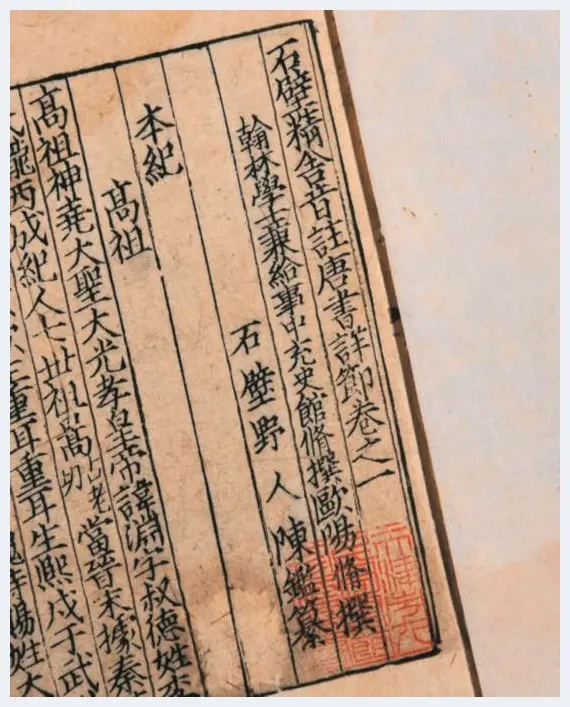 石壁精舍音註唐書詳節卷之一
翰林學士兼給事中充史館脩撰歐陽脩撰
石壁野人陳鑑纂
本紀
高祖
高祖神堯大聖大光孝皇帝諱淵字叔德姓李
隴西成紀人七世祖暠當晉末據秦
重耳重耳生熙戍于武
賜姓大